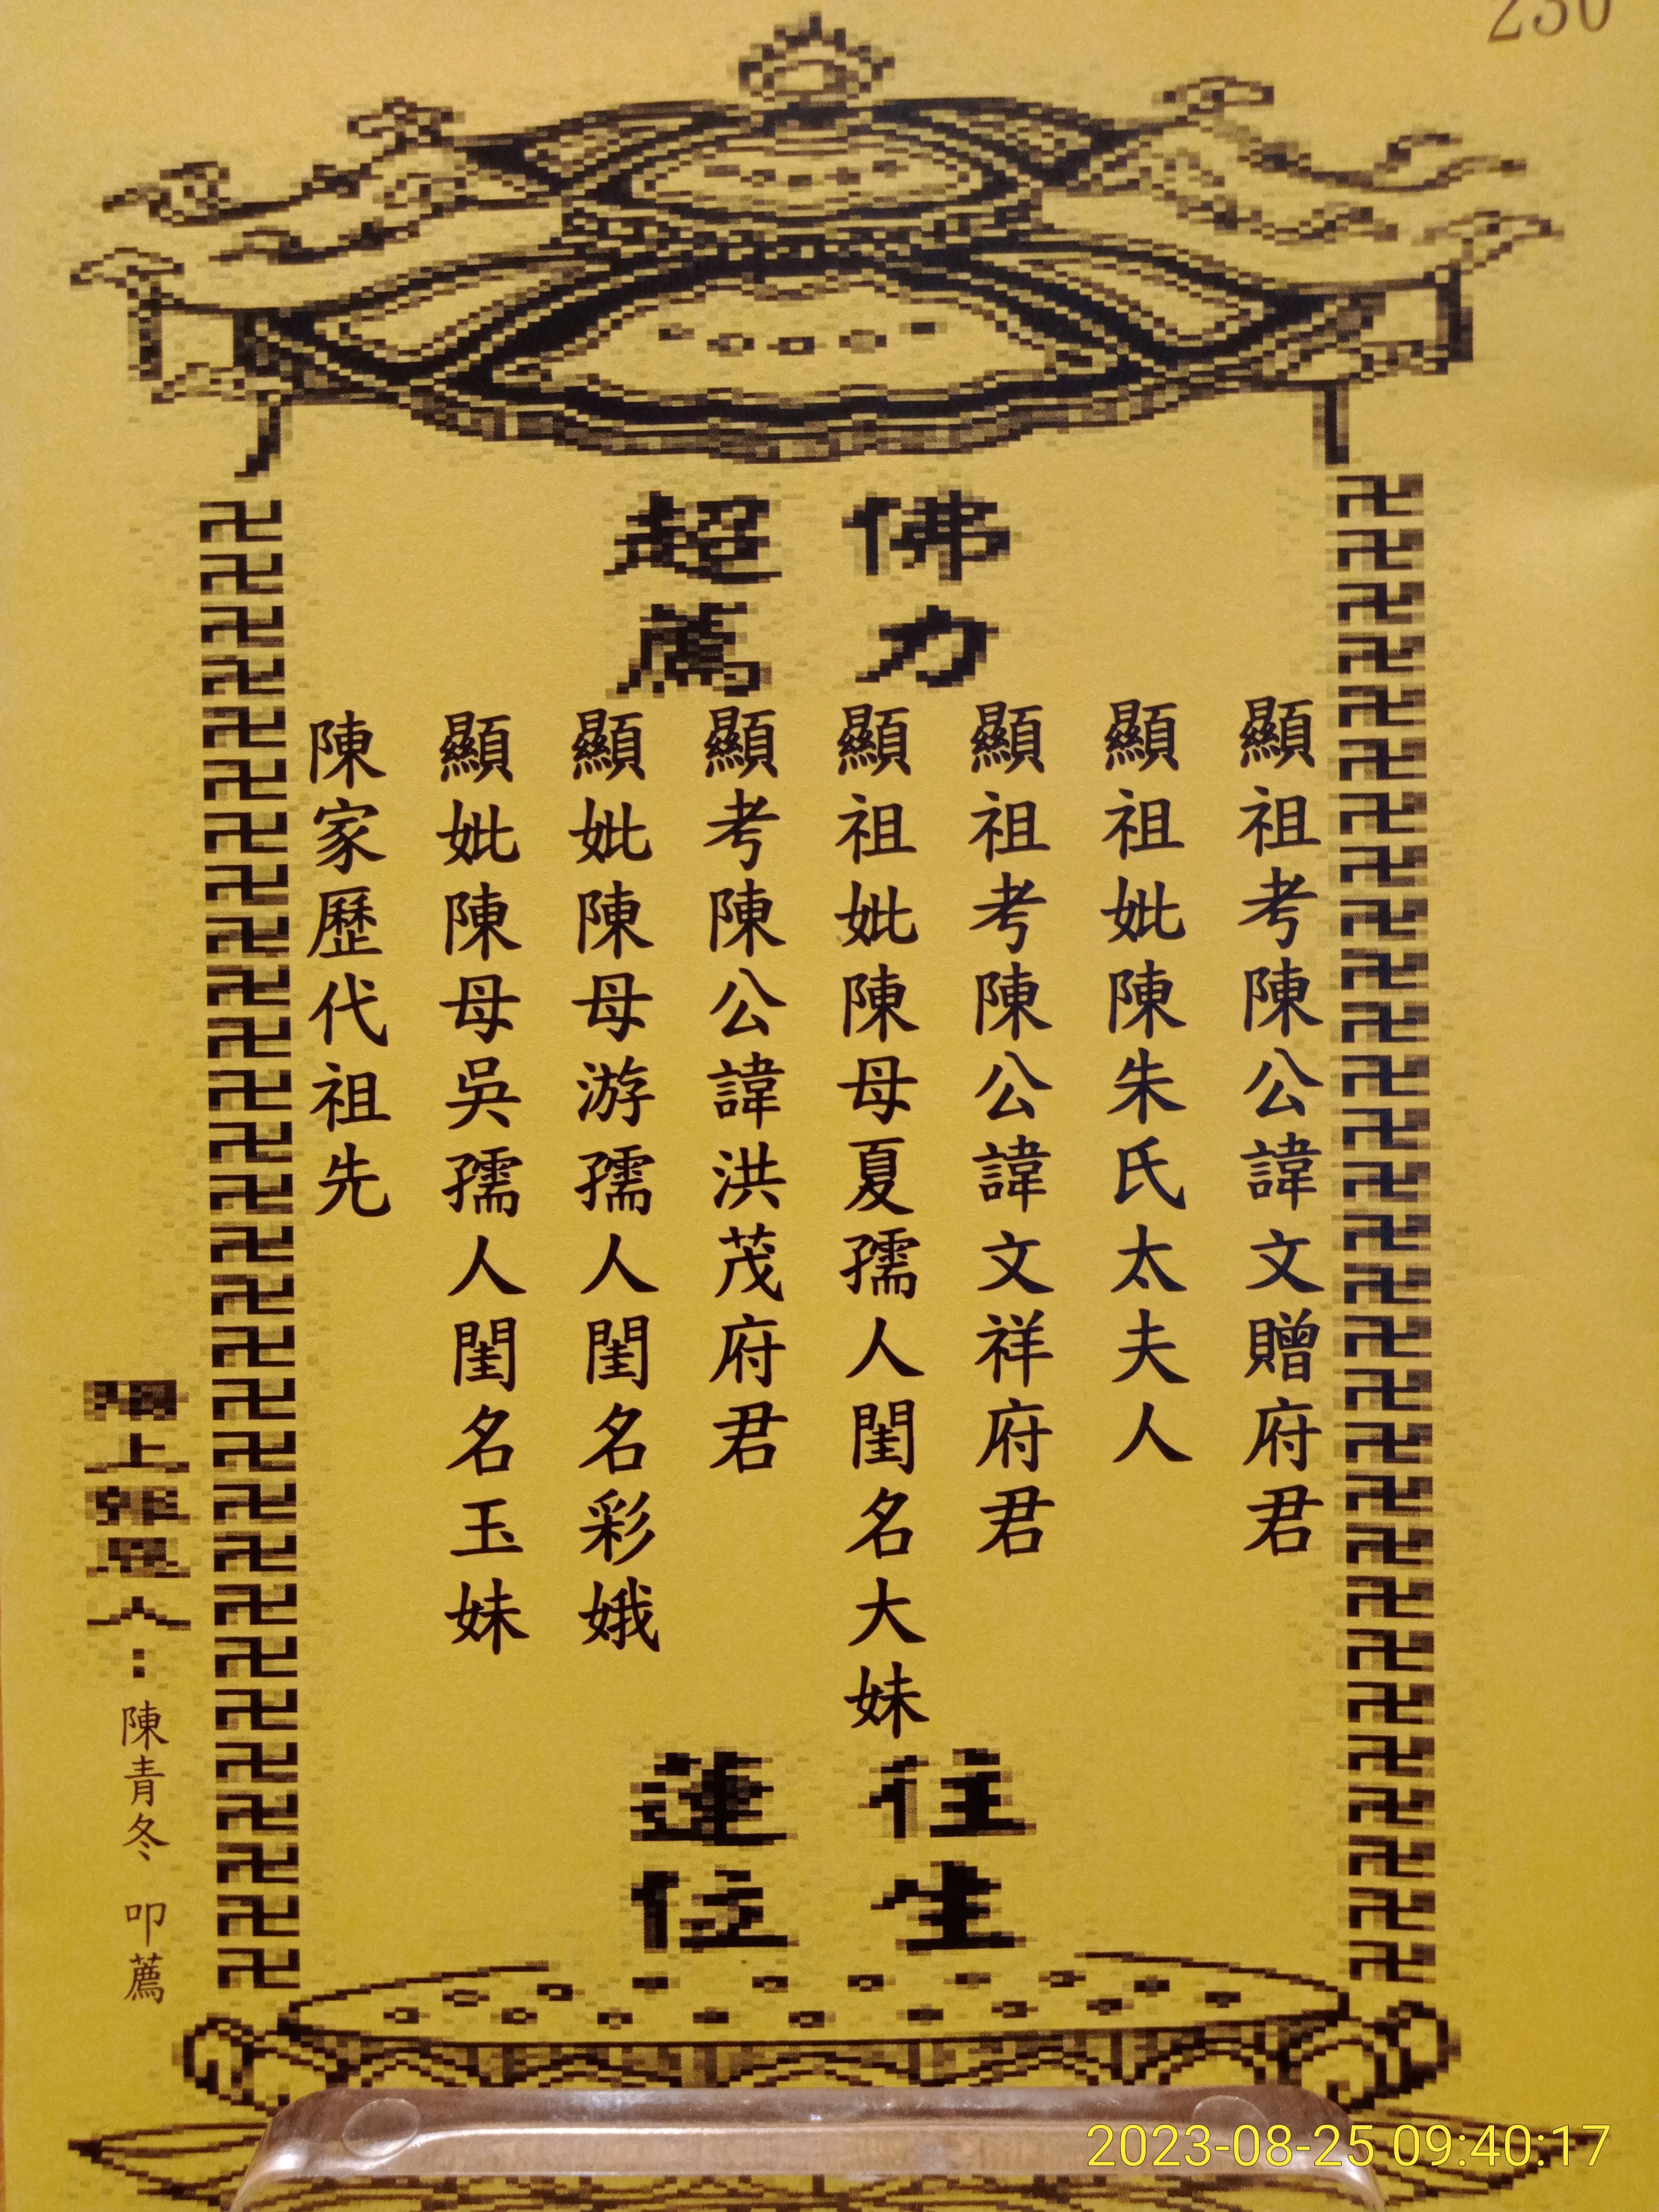 230
佛力
超薦
顯祖考陳公諱文贈府君
顯祖妣陳朱氏太夫人
顯祖考陳公諱文祥府君
顯祖妣陳母夏孺人閨名大妹
顯考陳公諱洪茂府君
顯妣陳母游孺人閨名彩娥
顯妣陳母吳孺人閨名玉妹
陳家歷代祖先
往生
蓮位
陽上報恩人：陳青冬 叩薦
2023-08-25 09:40:17